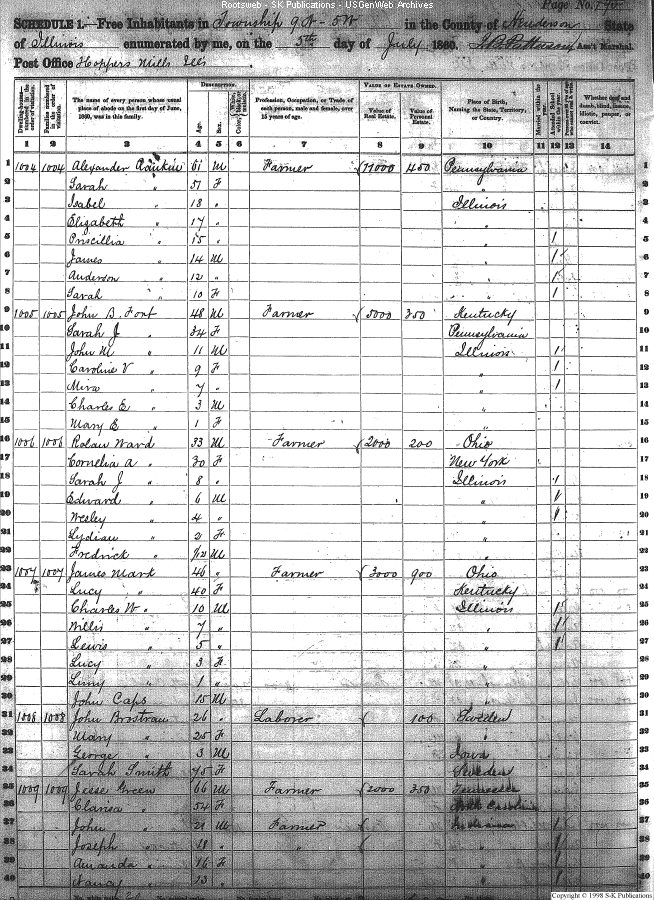 Rootsweb - SK Publications - USGenWeb Archives
Page No.
SCHEDULE 1.—Free Inhabitants in Township 9 N - 5 W in the County of Henderson State
of Illinois enumerated by me, on the 5th day of July 1860. Ass't Marshal.
Post Office Hoppers Mills Ills
DESCRIPTION. VALUE OF ESTATE OWNED.
The name of every person whose usual place of abode on the first day of June, 1860, was in this family. Age. Sex. Profession, Occupation, or Trade of each person, male and female, over 15 years of age. Value of Real Estate. Value of Personal Estate. Place of Birth, Naming the State, Territory, or Country. Married within the year. Attended School within the year. Whether deaf and dumb, blind, insane, idiotic, pauper, or convict.
1 2 3 4 5 6 7 8 9 10 11 12 13 14
1 1004 1004 Alexander Rankin 61 M Farmer 17000 400 Pennsylvania 1
2 Sarah " 51 F " 2
3 Isabel " 18 " Illinois 3
4 Elizabeth " 17 " " 4
5 Priscillia " 15 " " 1 5
6 James " 14 M " 1 6
7 Anderson " 12 " " 1 7
8 Sarah " 10 F " 1 8
9 1005 1005 John S. Fort 48 M Farmer 5000 350 Kentucky 9
10 Sarah J " 34 F Pennsylvania 10
11 John M " 11 M Illinois 1 11
12 Caroline V " 9 F " 1 12
13 Mira " 7 " " 1 13
14 Charles E " 3 M " 14
15 Mary E " 1 F " 15
16 1006 1006 Rolan Ward 33 M Farmer 2000 200 Ohio 16
17 Cornelia A " 30 F New York 17
18 Sarah J " 8 " Illinois 1 18
19 Edward " 6 M " 1 19
20 Wesley " 4 " " 1 20
21 Lydian " 2 F " 21
22 Fredrick " /12 M " 22
23 1007 1007 James Mark 46 " Farmer 3000 900 Ohio 23
24 Lucy " 40 F Kentucky 24
25 Charles W " 10 M Illinois 1 25
26 Willis " 7 " " 1 26
27 Lewis " 5 " " 1 27
28 Lucy " 3 F " 28
29 Limy " 1 " " 29
30 John Caps 15 M " 30
31 1008 1008 John Brostran 26 " Laborer 100 Sweden 31
32 Mary " 25 F " 32
33 George " 3 M Iowa 33
34 Sarah Smith 45 F Sweden 34
35 1009 1009 Jesse Green 66 M Farmer 2000 350 Tennessee 35
36 Clarisa " 54 F North Carolina 36
37 John " 21 M Farmer Indiana 1 37
38 Joseph " 18 " " " 1 38
39 Amanda " 16 F " 1 39
40 Nancy " 13 " " 1 40
Copyright © 1998 S-K Publications